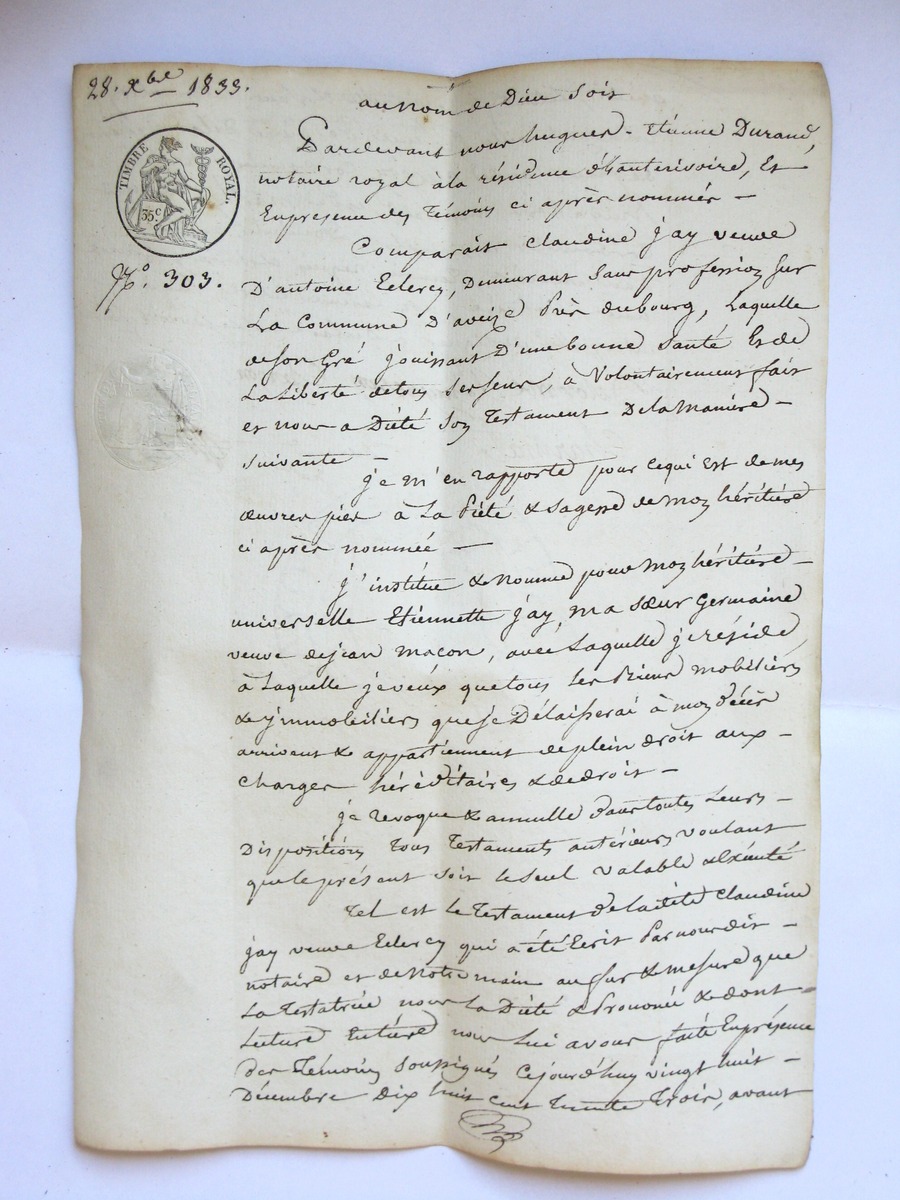 28. Xbre 1833.
au nom de Dieu soit
TIMBRE ROYAL.
35 c
Pardevant nous hugues - Étienne Durand,
notaire royal à la résidence d'hauterivoire, Et
En presence des Témoins ci après nommés -
N.º 303.
Comparait Claudine jay veuve
D'antoine Eclercy, Demeurant sans profession sur
La Commune D'aveize Près du bourg, Laquelle
de son Gré jouissant D'une bonne santé Et de
La Liberté de tous ses sens, à Volontairement fait
et nous a Dicté son Testament De la Manière -
suivante -
je m'en rapporte pour ce qui Est de mes
œuvres pies à La Piété & sagesse de mon héritière
ci après nommée -
j'institue & nomme pour mon héritière -
universelle Etiennette jay, ma sœur Germaine
veuve de jean macon, avec Laquelle je réside,
à Laquelle je veux que tous les Biens mobiliers
& immobiliers que je Délaisserai à mon décès
arrivent & appartiennent de plein droit aux -
charges héréditaires & de droit -
je revoque & annulle dans toutes Leurs -
Dispositions Tous Testaments antérieurs voulant
que le présent soit le seul valable & Exécuté
Tel est le Testament de la dite Claudine
jay veuve Eclercy qui a été Ecrit Par nous dit -
notaire et de Notre main au fur & mesure que
La Testatrice nous La Dicté & Prononcé & dont -
Lecture Entière nous Lui avons faite En présence
des Témoins soussignés ce jourd'huy vingt huit -
Décembre Dix huit cent trente Trois, avant